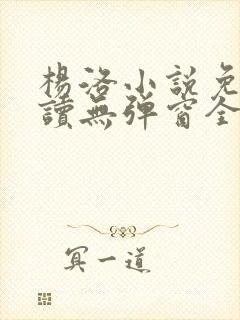 楊洛小說免
讀無彈窗全
冥一道